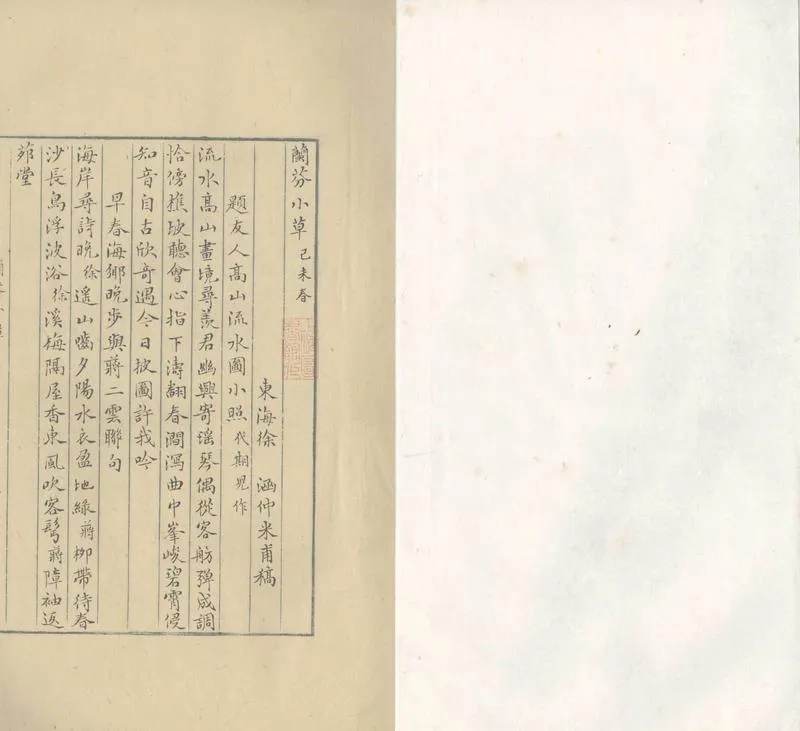 蘭芬小草 己未春
東海徐 涵仲米甫稿
題友人高山流水圖小照 代期兄作
流水高山畫境尋羨君幽興寄瑶琴偶從客舫彈成調
恰傍樵坡聽會心指下濤翻春澗瀉曲中峯峻碧霄侵
知音自古欣奇遇今日披圖許我吟
早春海鄉晚步與蔣二雲聯句
海岸尋詩晚徐遥山嚙夕陽水衣盈地緑蔣柳帶待春
沙長島浮波浴徐溪梅隔屋香東風吹客鬢蔣障袖返
茆堂